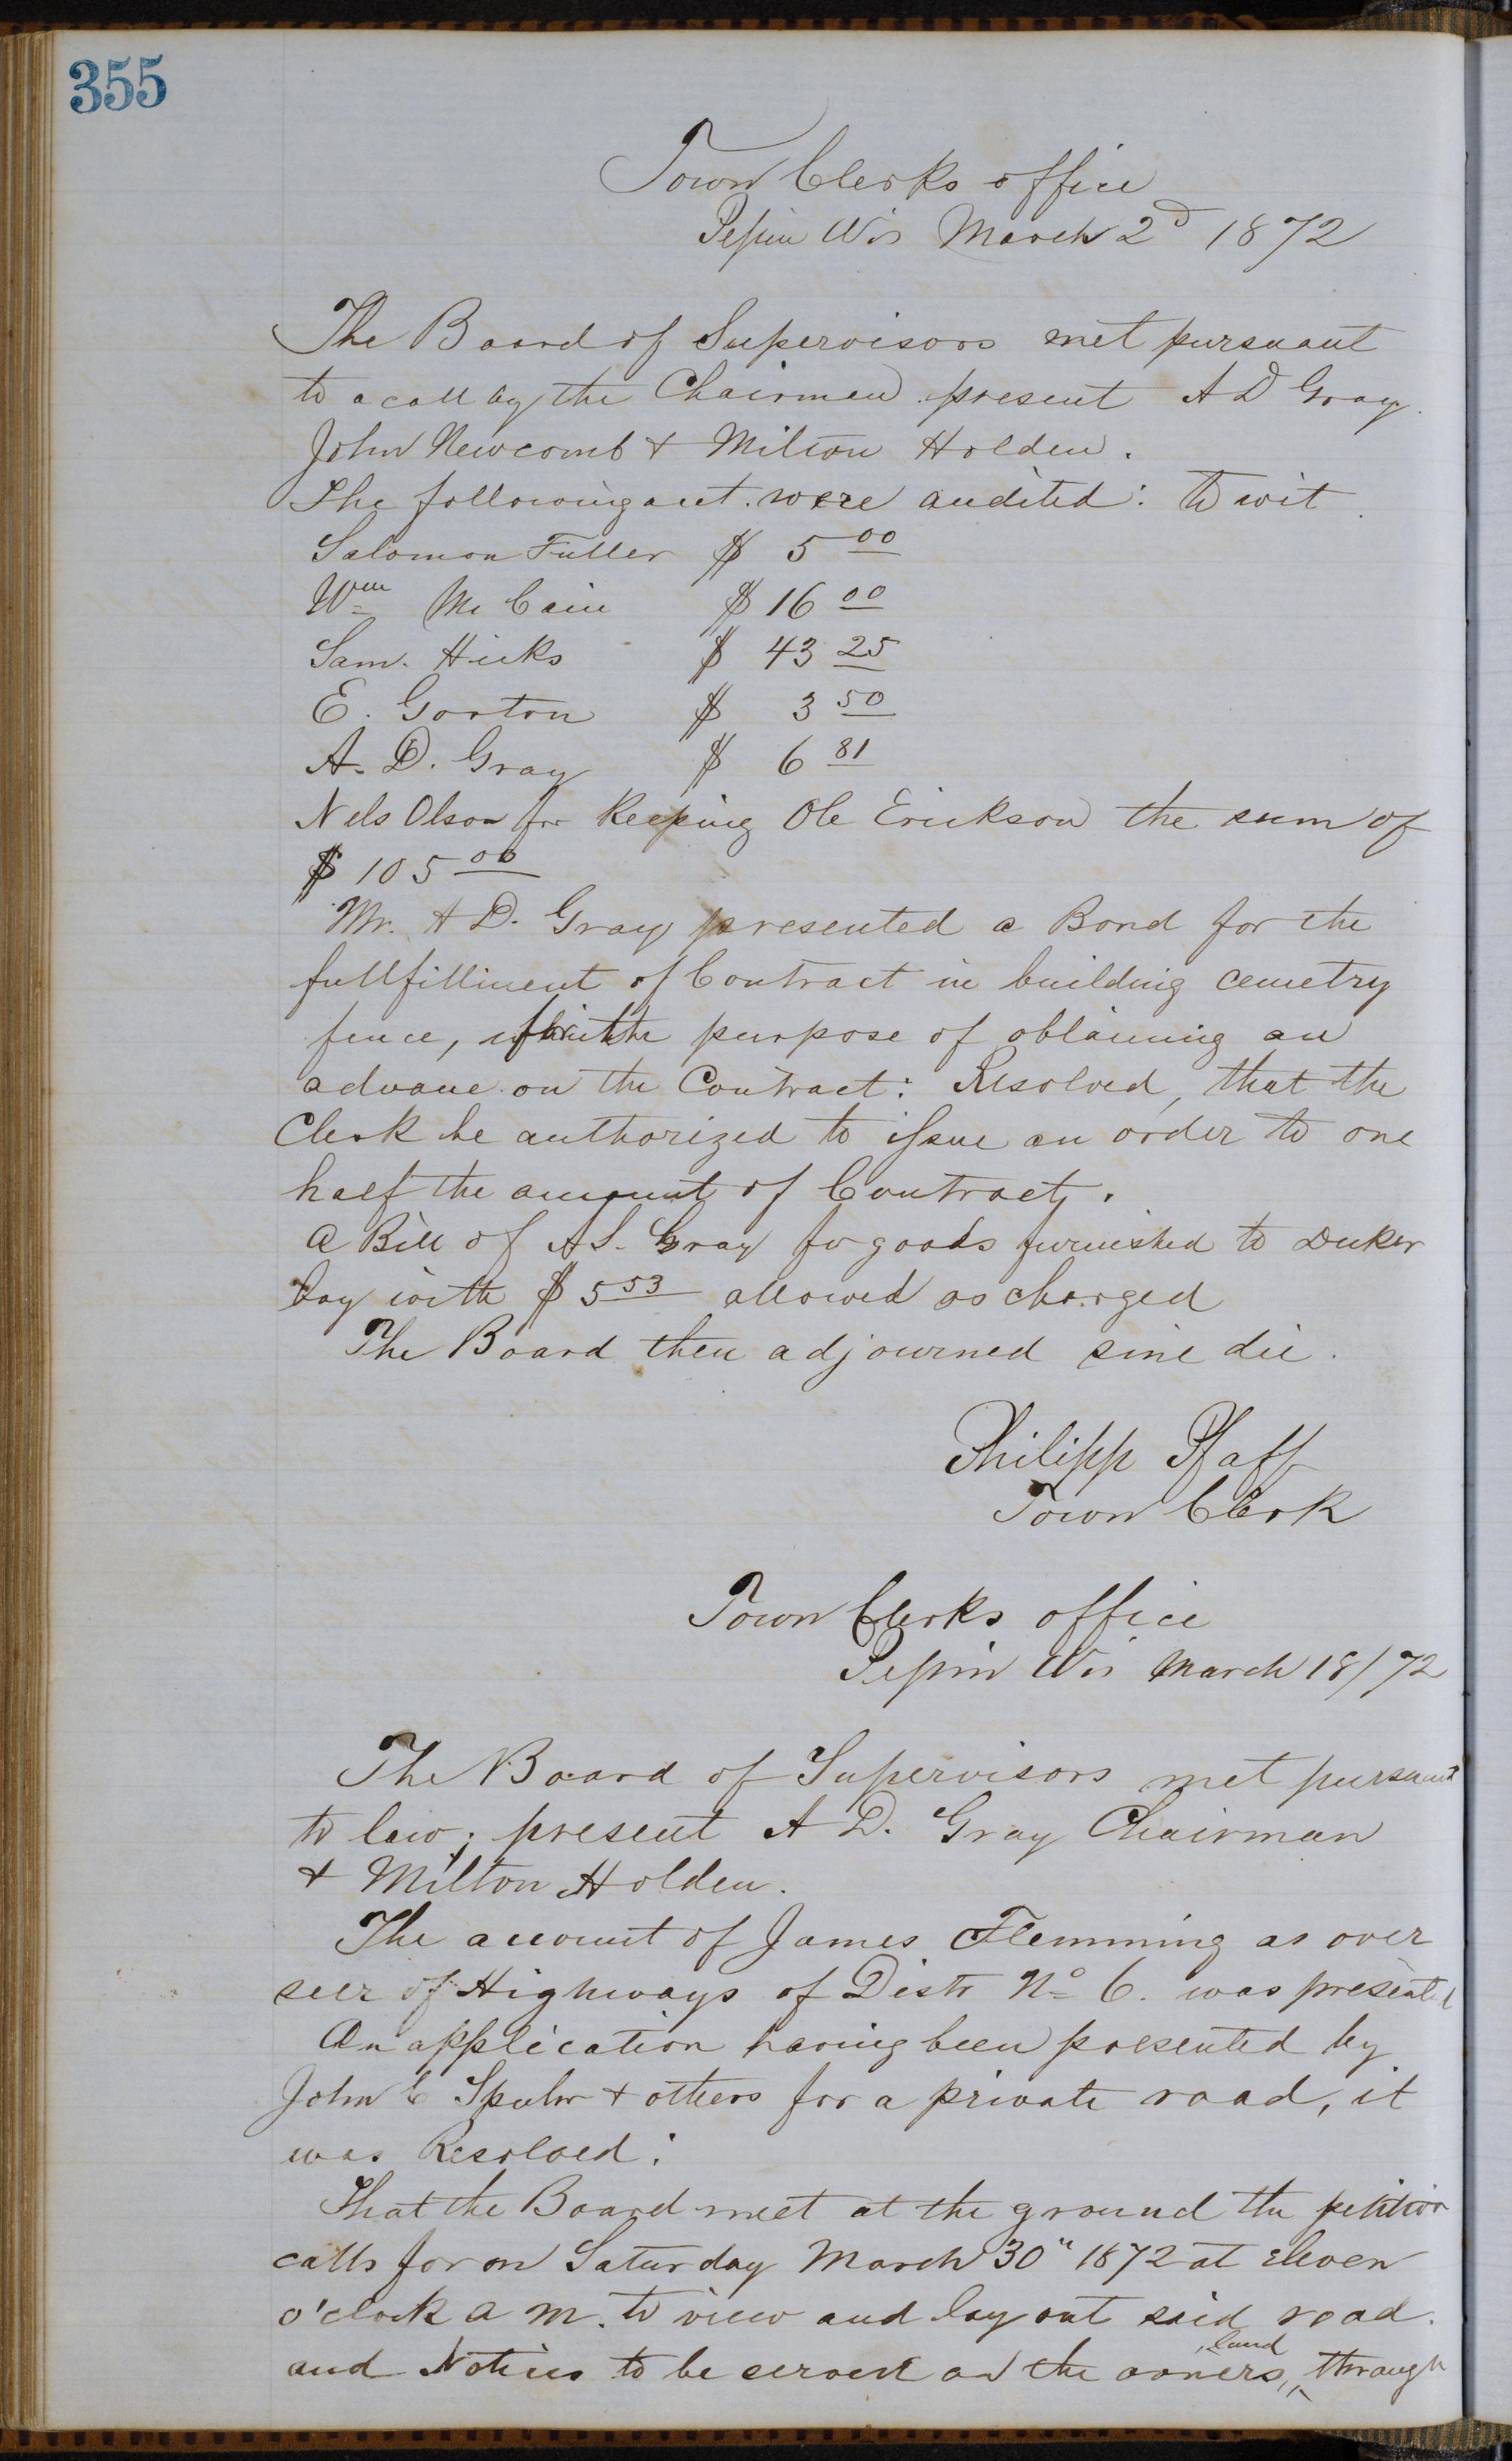 355
Town Clerks office
Pepin Wis March 2d 1872
The Board of Supervisors met pursuant
to a call by the Chairman present A D Gray
John Newcomb & Milton Holden.
The following acct. were audited: to wit
Salomon Fuller $ 5 00
Wm Mc Cain $ 16 00
Sam. Hicks $ 43 25
E. Gorton $ 3 50
A. D. Gray $ 6 81
Nels Olson for Keeping Ole Erickson the sum of
$ 105 00
Mr. A D. Gray presented a Bond for the
fullfillment of Contract in building cemetry
fence, for the purpose of obtaining an
advance on the Contract: Resolved, that the
Clerk be authorized to issue an order to one
half the amount of Contract.
A Bill of A S. Gray for goods furnished to Decker
boy with $ 5 53 allowed as charged
The Board then adjourned sine die.
Philipp Pfaff
Town Clerk
Town Clerks office
Pepin Wis March 18/72
The Board of Supervisors met pursuant
to law; present A D. Gray Chairman
& Milton Holden.
The account of James Flemming as over
seer of Highways of Distr No 6. was presented
An application having been presented by
John C Spuhr & others for a private road, it
was Resolved:
That the Board meet at the ground the petition
calls for on Saturday March 30" 1872 at eleven
o'clock a m. to view and lay out said road.
and Notices to be served on the owners, land through